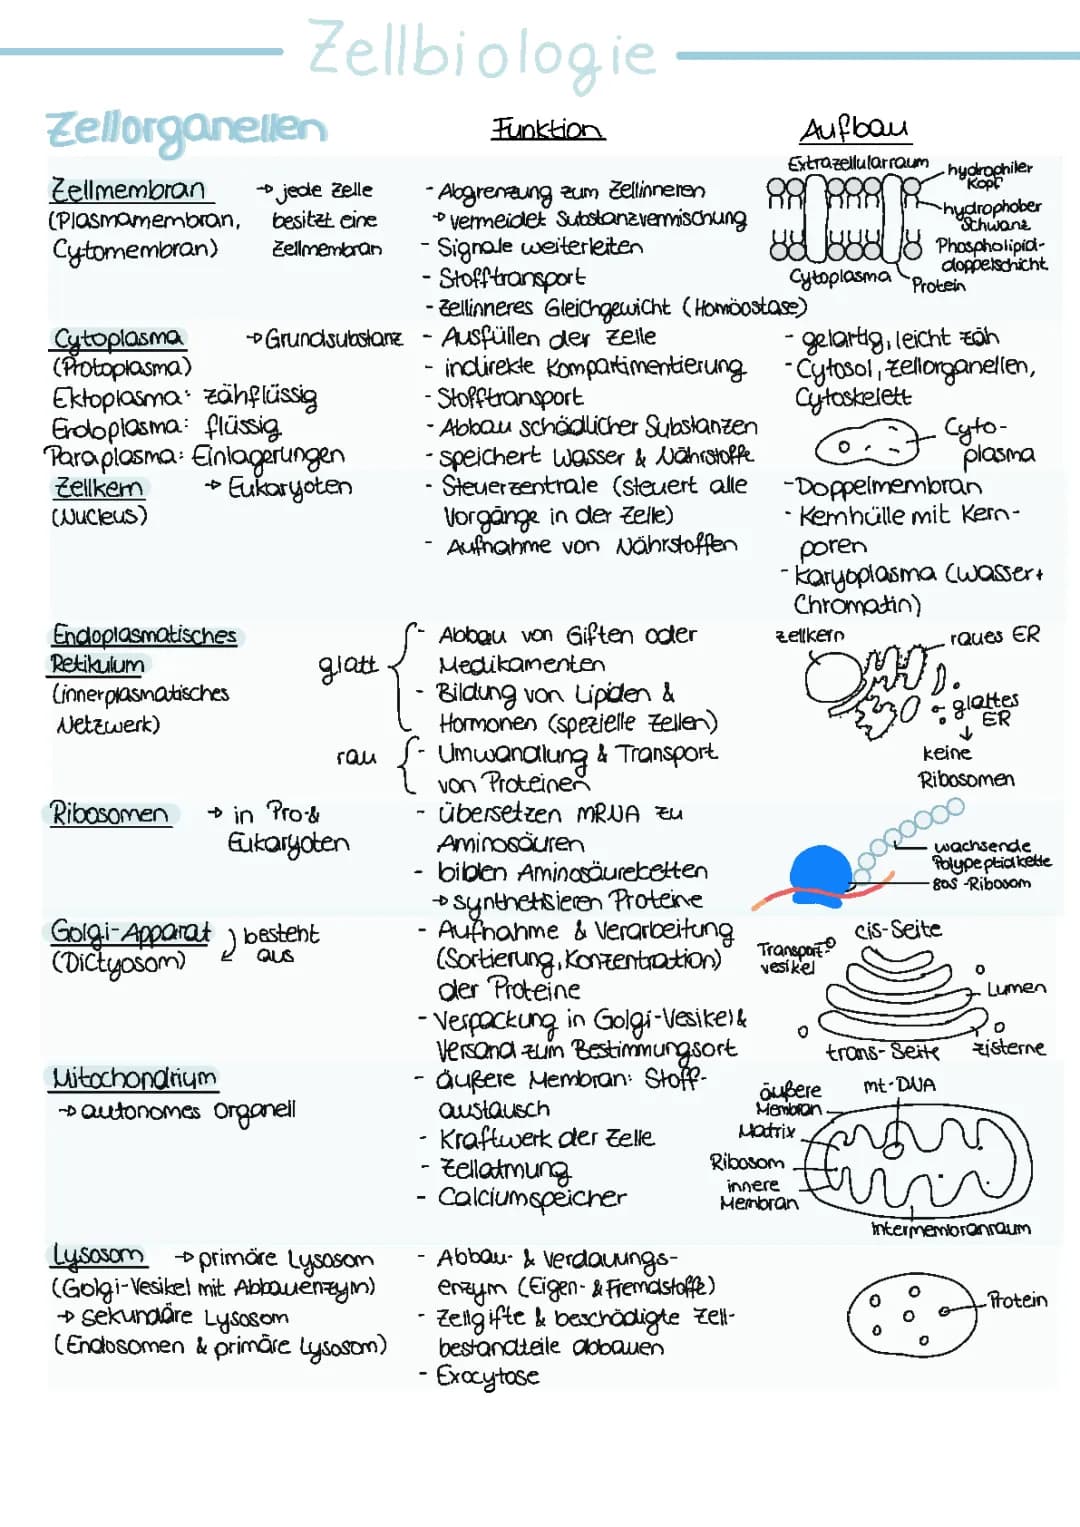 Zellbiologie
Zellorganellen
Funktion
Aufbau
Zellmembran → jede Zelle
(Plasmamembran, besitzt eine
Cytomembran) Zellmembran
- Abgrenzung zum Zellinneren
→ vermeidet Substanzvermischung
- Signale weiterleiten
- Stofftransport
- Zellinneres Gleichgewicht (Homöostase)
Extrazellularraum
hydrophiler
Kopf
hydrophober
Schwanz
Phospholipid-
doppelschicht
Cytoplasma
Protein
Cytoplasma → Grundsubstanz
(Protoplasma)
Ektoplasma: zähflüssig
Endoplasma: flüssig
Paraplasma: Einlagerungen
- Ausfüllen der Zelle
- indirekte Kompartimentierung
- Stofftransport
- Abbau schädlicher Substanzen
- speichert Wasser & Nährstoffe
- gelartig, leicht zäh
- Cytosol, Zellorganellen,
Cytoskelett
Cyto-
plasma
Zellkern → Eukaryoten
(Nucleus)
- Steuerzentrale (steuert alle
Vorgänge in der Zelle)
- Aufnahme von Nährstoffen
- Doppelmembran
- Kernhülle mit Kern-
poren
- Karyoplasma (Wasser+
Chromatin)
Endoplasmatisches
Retikulum
(innerplasmatisches
Netzwerk)
glatt
- Abbau von Giften oder
Medikamenten
- Bildung von Lipiden &
Hormonen (spezielle Zellen)
rau
- Umwandlung & Transport
von Proteinen
zellkern
raues ER
glattes
ER
↓
keine
Ribosomen
Ribosomen → in Pro-&
Eukaryoten
- übersetzen mRNA zu
Aminosäuren
- bilden Aminosäureketten
→ synthetisieren Proteine
wachsende
Polypeptidkette
80S -Ribosom
Golgi-Apparat besteht
(Dictyosom) aus
- Aufnahme & Verarbeitung
(Sortierung, Konzentration)
der Proteine
- Verpackung in Golgi-Vesikel &
Versand zum Bestimmungsort
cis-Seite
Transport-
vesikel
Lumen
trans-Seite
Zisterne
Mitochondrium
→ autonomes Organell
- äußere Membran: Stoff-
austausch
- Kraftwerk der Zelle
- Zellatmung
- Calciumspeicher
äußere
Membran
mt-DNA
Matrix
Ribosom
innere
Membran
Intermembranraum
Lysosom → primäre Lysosom
(Golgi-Vesikel mit Abbauenzym)
→ sekundäre Lysosom
(Endosomen & primäre Lysosom)
- Abbau- & Verdauungs-
enzym (Eigen- & Fremdstoffe)
- Zellgifte & beschädigte Zell-
bestandteile abbauen
- Exocytose
Protein